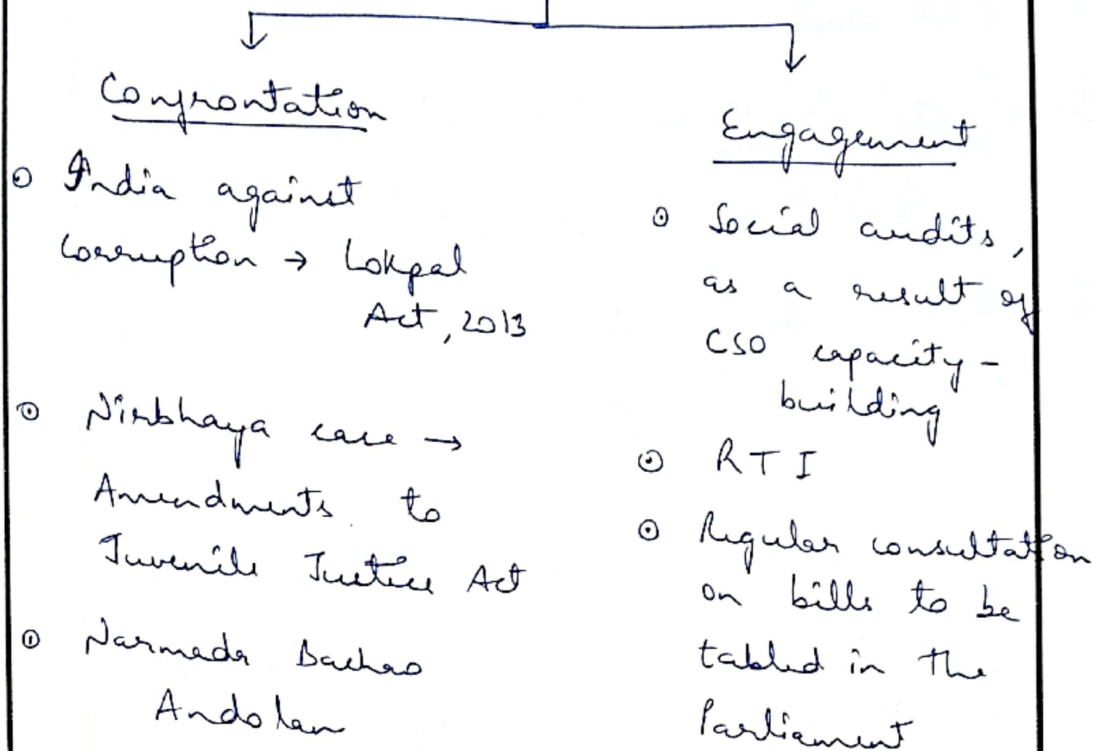 Confrontation
India against
Corruption → Lokpal
Act, 2013
Nirbhaya case →
Amendments to
Juvenile Justice Act
Narmada Bachao
Andolan
Engagement
Social audits,
as a result of
CSO capacity-
building
RTI
Regular consultation
on bills to be
tabled in the
Parliament